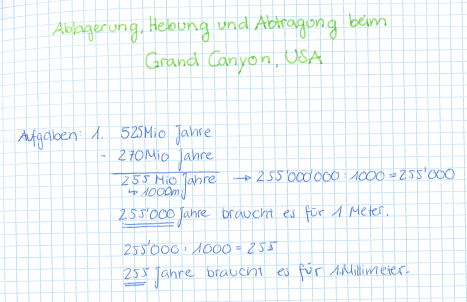 Ablagerung, Hebung und Abtragung beim
Grand Canyon, USA
Aufgaben: 1. 525 Mio Jahre
- 270 Mio Jahre
255 Mio Jahre → 255'000'000 : 1000 = 255'000
↳ 1000m
255'000 Jahre braucht es für 1 Meter.
255'000 : 1000 = 255
255 Jahre braucht es für 1 Millimeter.